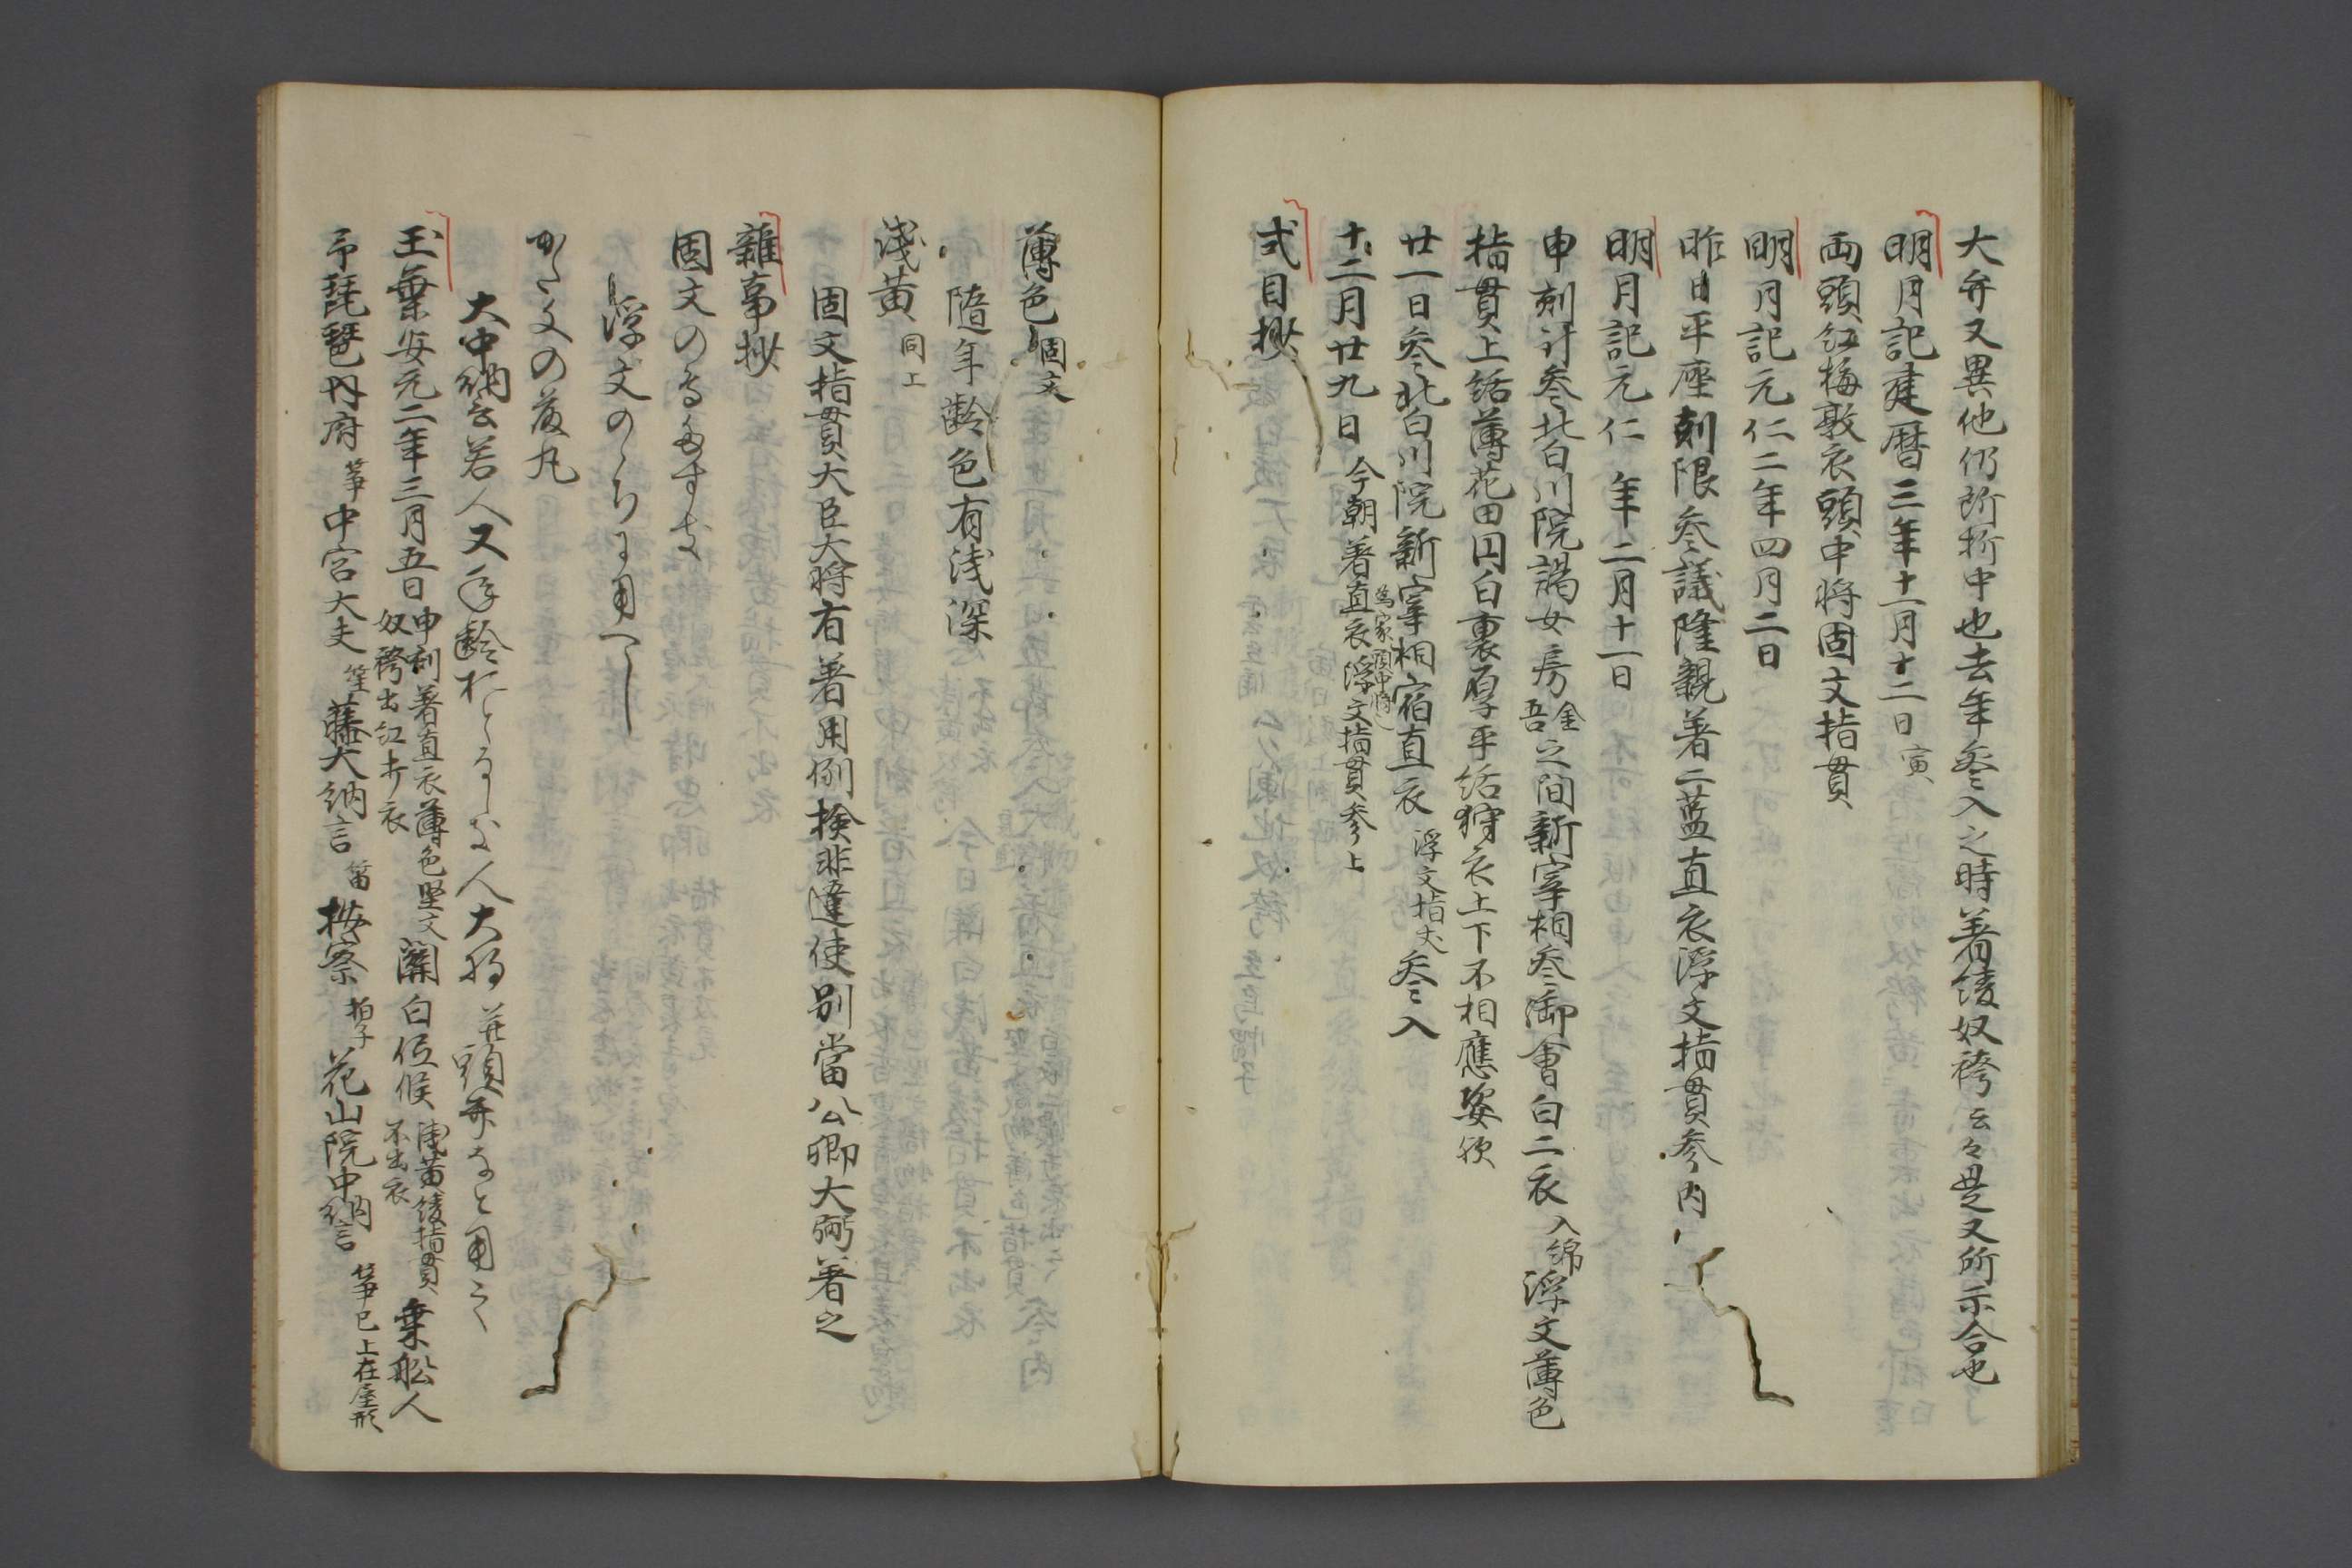 大弁又異他仍所折中也去年参入之時著綾奴袴云々是又所示合也
明月記建暦三年十一月十二日寅
両頭紅梅敷衣頭中将固文指貫
明月記元仁二年四月二日
昨日平座刻限参議隆親著二藍直衣浮文指貫参内
明月記元仁年二月十一日
申刻計参北白川院謁女房金吾之間新宰相参御會白二衣入綿浮文薄色
指貫上結薄花田円白裏厚平結狩衣上下不相應姿頗
廿一日参北白川院新宰相宿直衣浮文指大参入
十二月廿九日今朝著直衣浮文指貫参上
為家
式目抄
薄色固文
随年齢色有浅深
浅黄同上
固文指貫大臣大将有著用例検非違使別當公卿大弼著之
雜事抄
固文の
浮文の用へし
かた文の藤丸
大中納言若人又年齢おとなしき人大将并頭弁なと用之
玉葉安元二年三月五日申刻著直衣薄色堅文奴袴出紅打衣關白伺候浅黄綾指貫不出衣乗船人
予琵琶内府箏中宮大夫笙藤大納言笛按察拍子花山院中納言箏已上在屋形